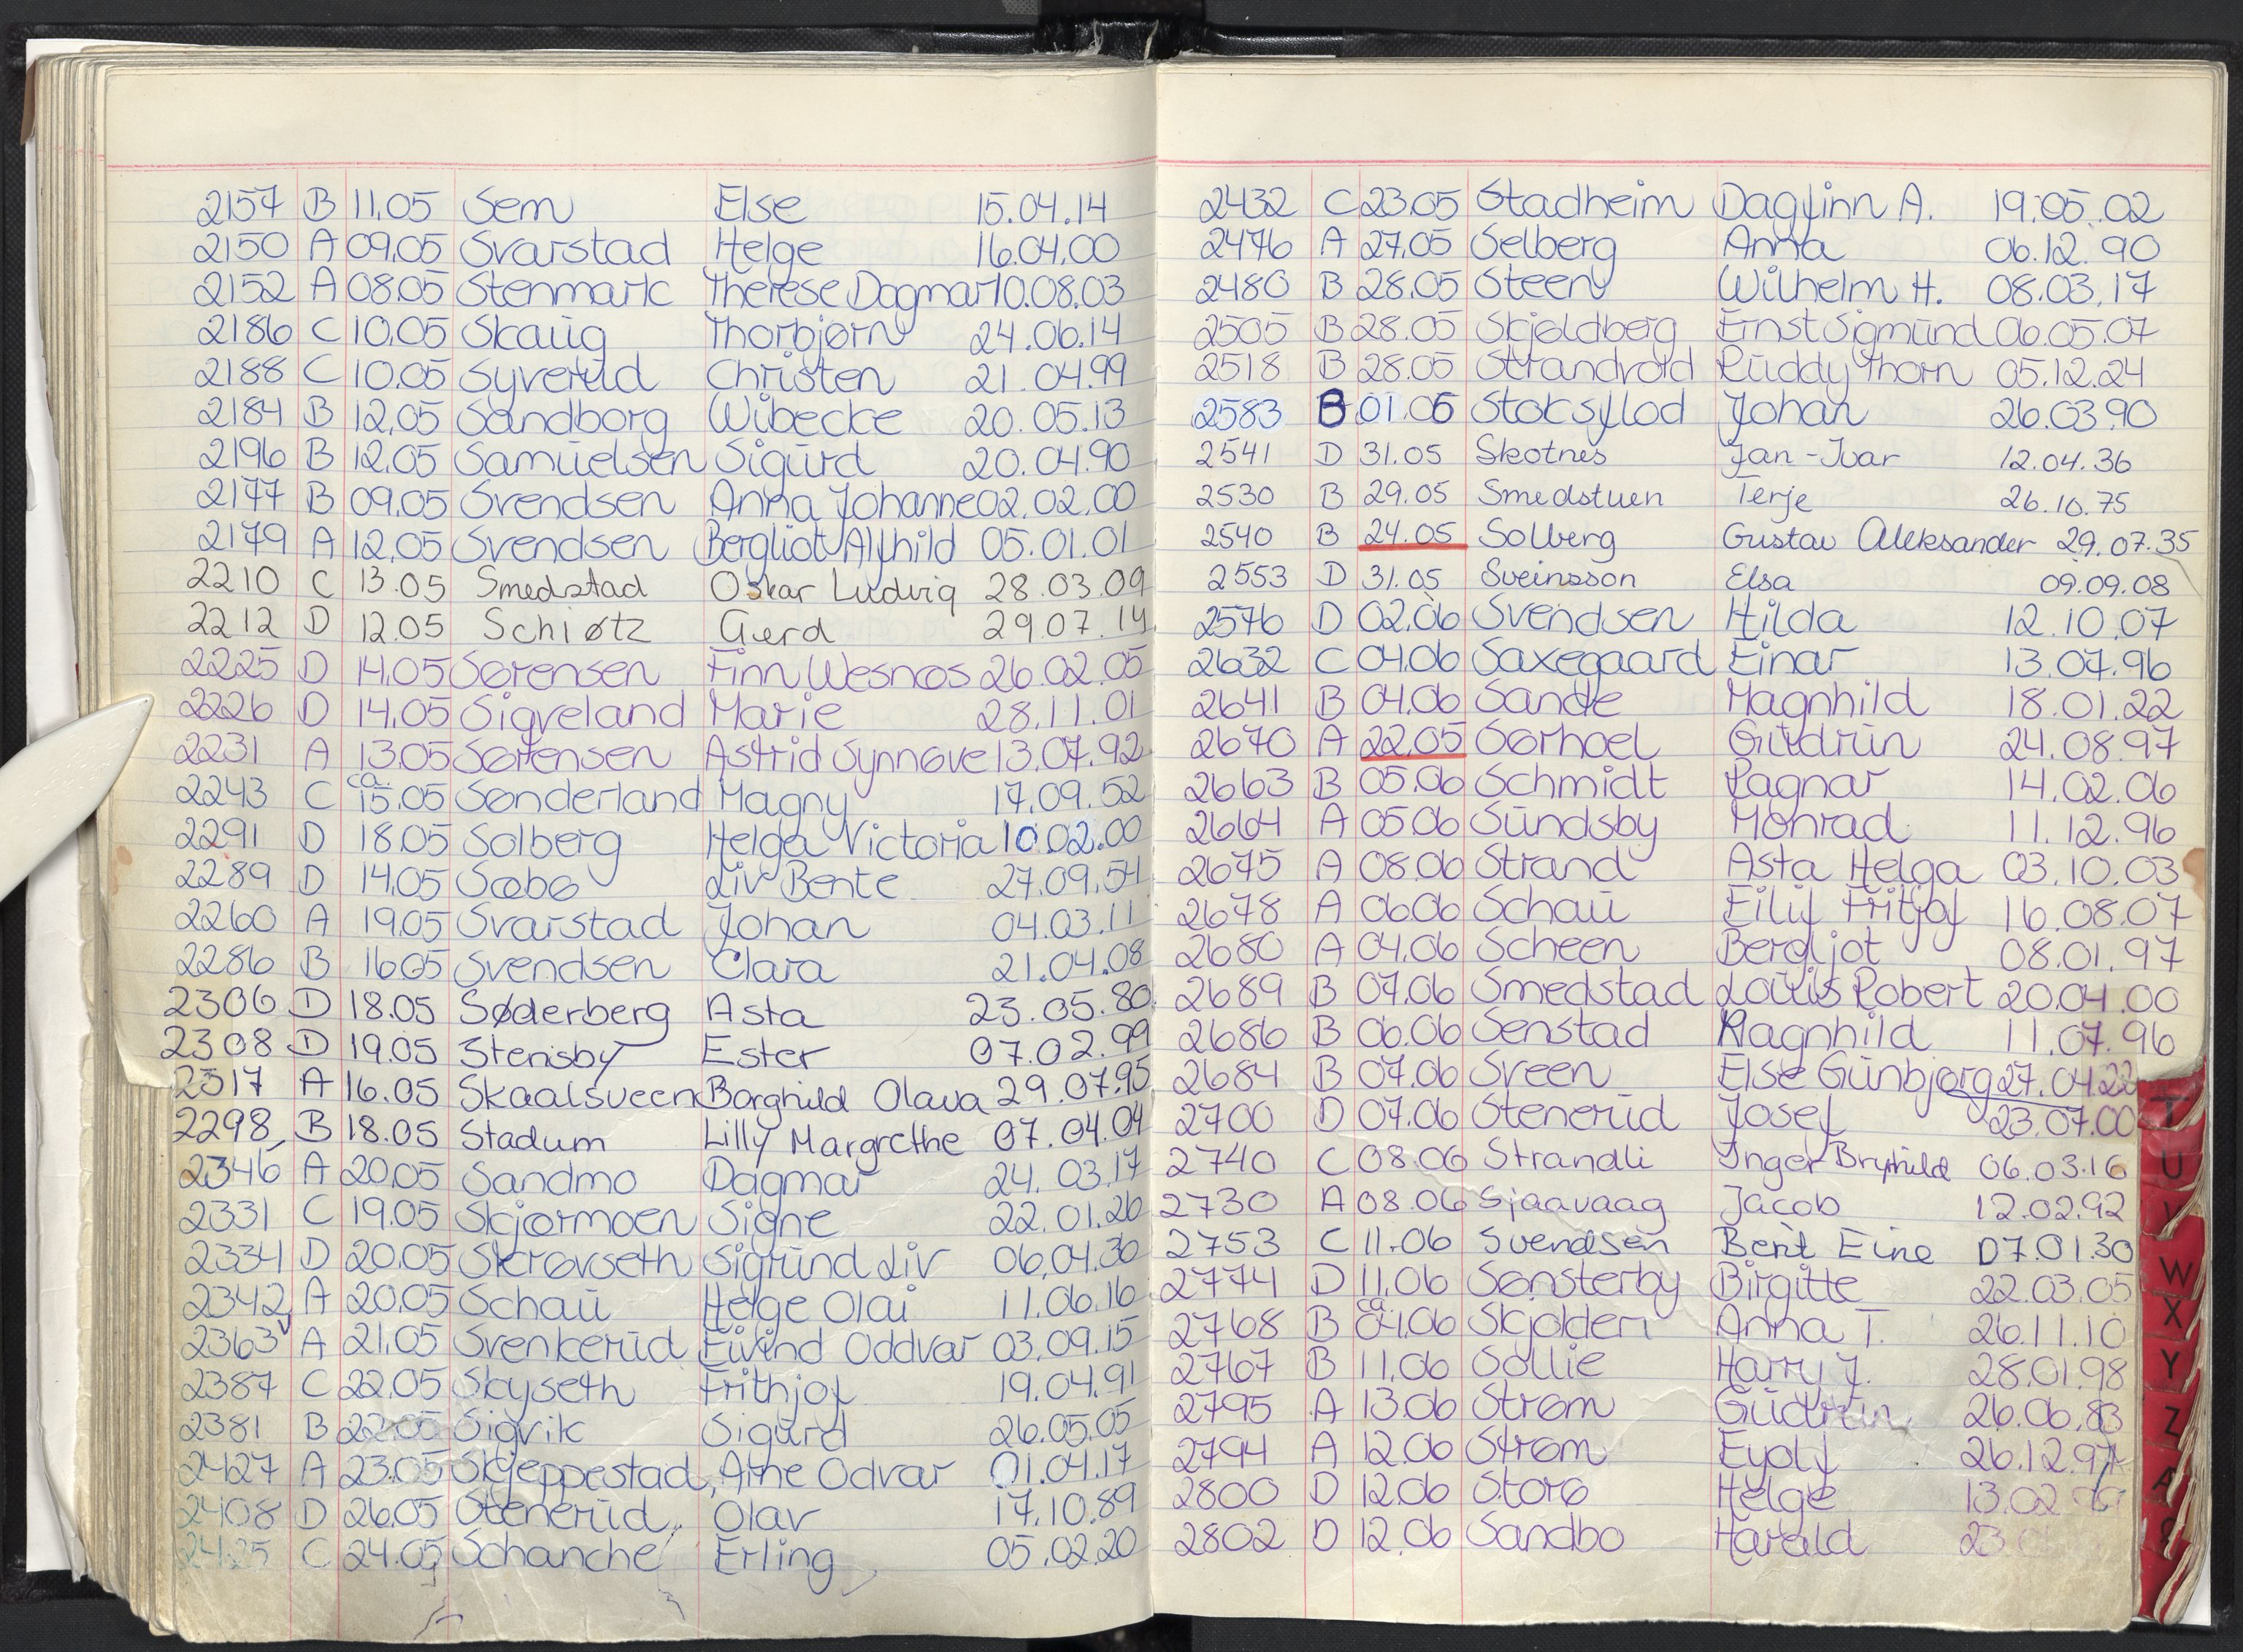 2157 B 11.05 Sem Else 15.04.14
2150 A 09.05 Svarstad Helge 16.04.00
2152 A 08.05 Stenmark Therese Dagmar 10.08.03
2186 C 10.05 Skaug Thorbjørn 24.06.14
2188 C 10.05 Syverud Christen 21.04.99
2184 B 12.05 Sandborg Wibecke 20.05.13
2196 B 12.05 Samuelsen Sigurd 20.04.90
2177 B 09.05 Svendsen Anna Johanne 02.02.00
2179 A 12.05 Svendsen Bergliot Alfhild 05.01.01
2210 C 13.05 Smedstad Oskar Ludvig 28.03.09
2212 D 12.05 Schiøtz Gerd 29.07.14
2225 D 14.05 Sørensen Finn Wesnes 26.02.05
2226 D 14.05 Sigveland Marie 28.11.01
2231 A 13.05 Sørensen Astrid Synnøve 13.07.92
2243 C ca. 15.05 Sønderland Magny 17.09.52
2291 D 18.05 Solberg Helga Victoria 10.02.00
2289 D 14.05 Sæbø Liv Bente 27.09.54
2260 A 19.05 Svarstad Johan 04.03.11
2286 B 16.05 Svendsen Clara 21.04.08
2306 D 18.05 Søderberg Asta 23.05.80
2308 D 19.05 Stensby Ester 07.02.99
2317 A 16.05 Skaalsveen Borghild Olava 29.07.95
2298 B 18.05 Stadum Lilly Margrethe 07.04.04
2346 A 20.05 Sandmo Dagmar 24.03.17
2331 C 19.05 Skjørmoen Signe 22.01.26
2334 D 20.05 Skrøvseth Sigrund Liv 06.04.30
2342 A 20.05 Schau Helge Olai 11.06.16
2363 A 21.05 Svenkerud Eivind Oddvar 03.09.15
2387 C 22.05 Skyseth Frithjof 19.04.91
2381 B 22.05 Sigvik Sigurd 26.05.05
2427 A 23.05 Skjeppestad, Arne Odvar 01.04.17
2408 D 26.05 Stenerud Olav 17.10.89
2425 C 24.05 Schanche Erling 05.02.20
2432 C 23.05 Stadheim Dagfinn A. 19.05.02
2476 A 27.05 Selberg Anna 06.12.90
2480 B 28.05 Steen Wilhelm H. 08.03.17
2505 B 28.05 Skjoldberg Ernst Sigmund 06.05.07
2518 B 28.05 Strandvold Ruddy Thorn 05.12.24
2583 B 01.06 Stoksflod Johan 26.03.90
2541 D 31.05 Skotnes Jan-Ivar 12.04.36
2530 B 29.05 Smedstuen Terje 26.10.75
2540 B 24.05 Solberg Gustav Aleksander 29.07.35
2553 D 31.05 Sveinsson Elsa 09.09.08
2576 D 02.06 Svendsen Hilda 12.10.07
2632 C 04.06 Saxegaard Einar 13.07.96
2641 B 04.06 Sande Magnhild 18.01.22
2670 A 22.05 Sørhoel Gudrun 24.08.97
2663 B 05.06 Schmidt Ragnar 14.02.06
2664 A 05.06 Sundsby Monrad 11.12.96
2675 A 08.06 Strand Asta Helga 03.10.03
2678 A 06.06 Schau Eilif Fritjof 16.08.07
2680 A 04.06 Scheen Bergljot 08.01.97
2689 B 07.06 Smedstad Louis Robert 20.04.00
2686 B 06.06 Senstad Ragnhild 11.07.96
2684 B 07.06 Sveen Else Gunbjørg 27.04.22
2700 D 07.06 Stenerud Josef 23.07.00
2740 C 08.06 Strandli Inger Brynhild 06.03.16
2730 A 08.06 Sjaavaag Jacob 12.02.92
2753 C 11.06 Svendsen Berit Eine 07.01.30
2774 D 11.06 Sønsterby Birgitte 22.03.05
2768 B ca. 04.06 Skjolden Anna T. 26.11.10
2767 B 11.06 Sollie Harry J. 28.01.98
2795 A 13.06 Strøm Gudrun 26.06.83
2794 A 12.06 Strøm Eyolf 26.12.97
2800 D 12.06 Storø Helge 13.02
2802 D 12.06 Sandbo Harald 23
T
U
V
W
X
Y
Z